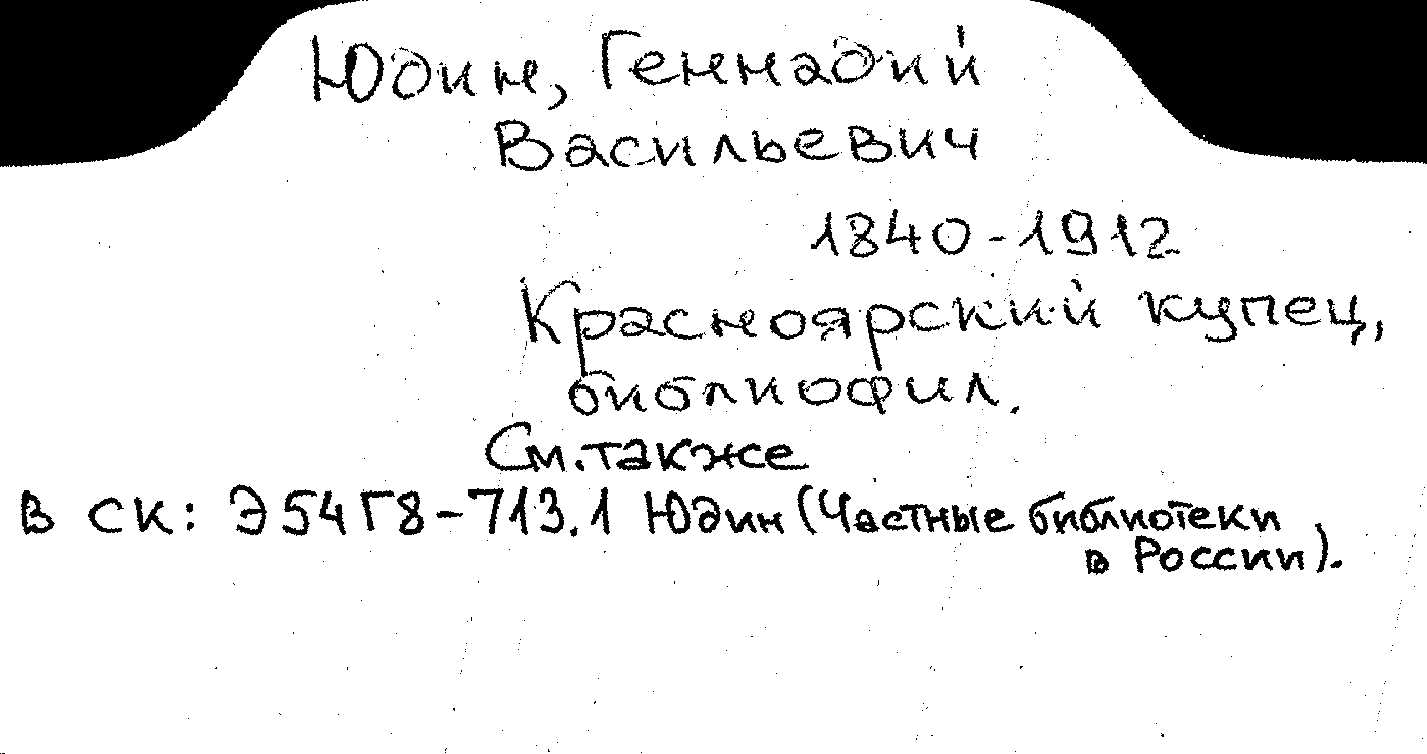 Юдин, Геннадий
Васильевич
1840-1912
Красноярский купец,
библиофил.
См. также
в СК: Э54Г8-713.1 Юдин (Частные библиотеки
в России).